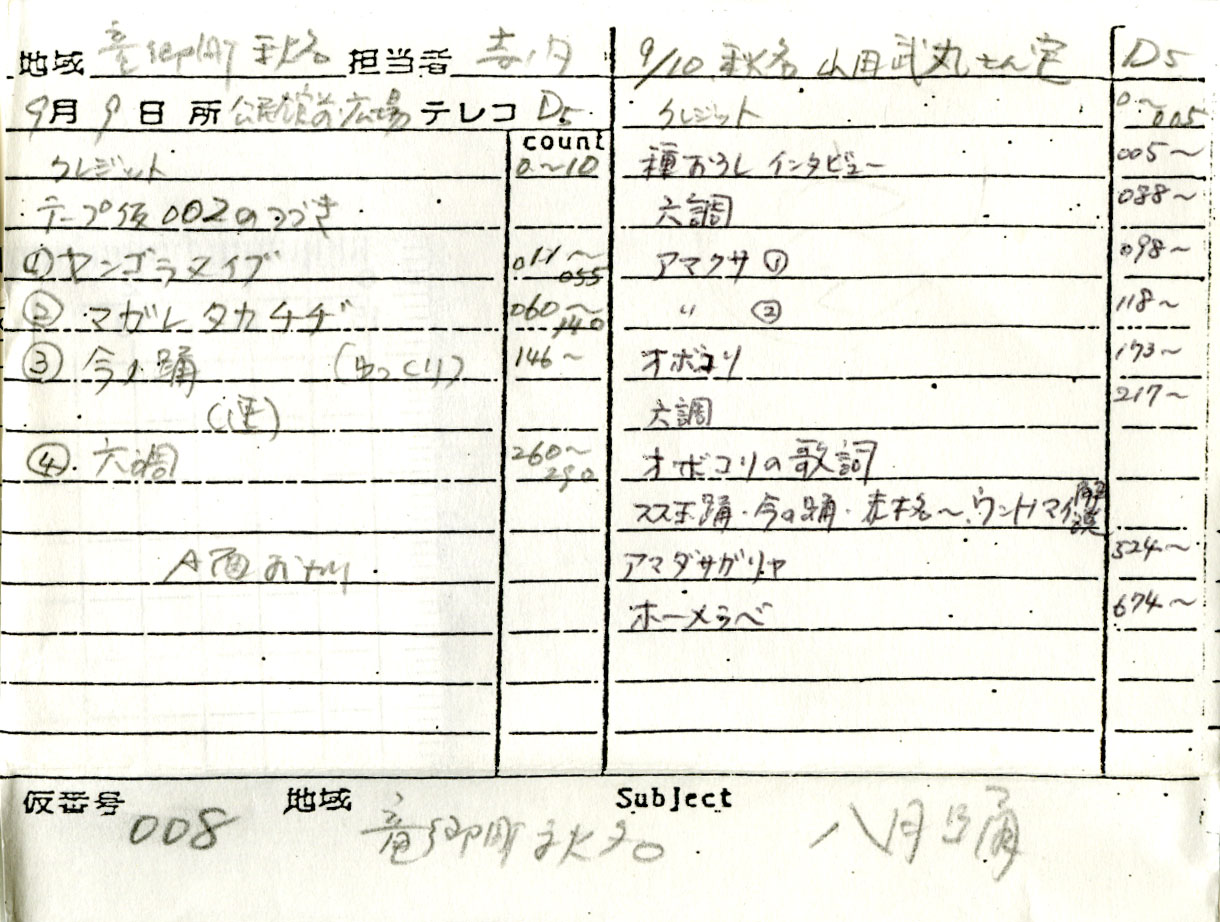 地域 竜郷町 秋名 担当者
9月9日 所 公民館前広場 テレコ D5
count
クレジット 0~10
テープ仮002のつづき
① ヤンゴラタイブ 011~055
② マガレ タカチヂ 060~140
③ 今ノ踊 (ゆっくり) 146~
(速)
④. 六調 260~290
A面おわり
9/10 秋名 山田武丸さん宅 D5
クレジット 0~005
種おろし インタビュー 005~
六調 088~
アマクサ ① 098~
〃 ② 118~
オボコリ 173~
六調 217~
オボコリの歌詞
スス玉踊・今の踊・赤木名~、ウントノマイ 解説
アマダサガリヤ 524~
ホーメラベ 674~
仮番号 008 地域 竜郷町秋名 Subject 八月踊